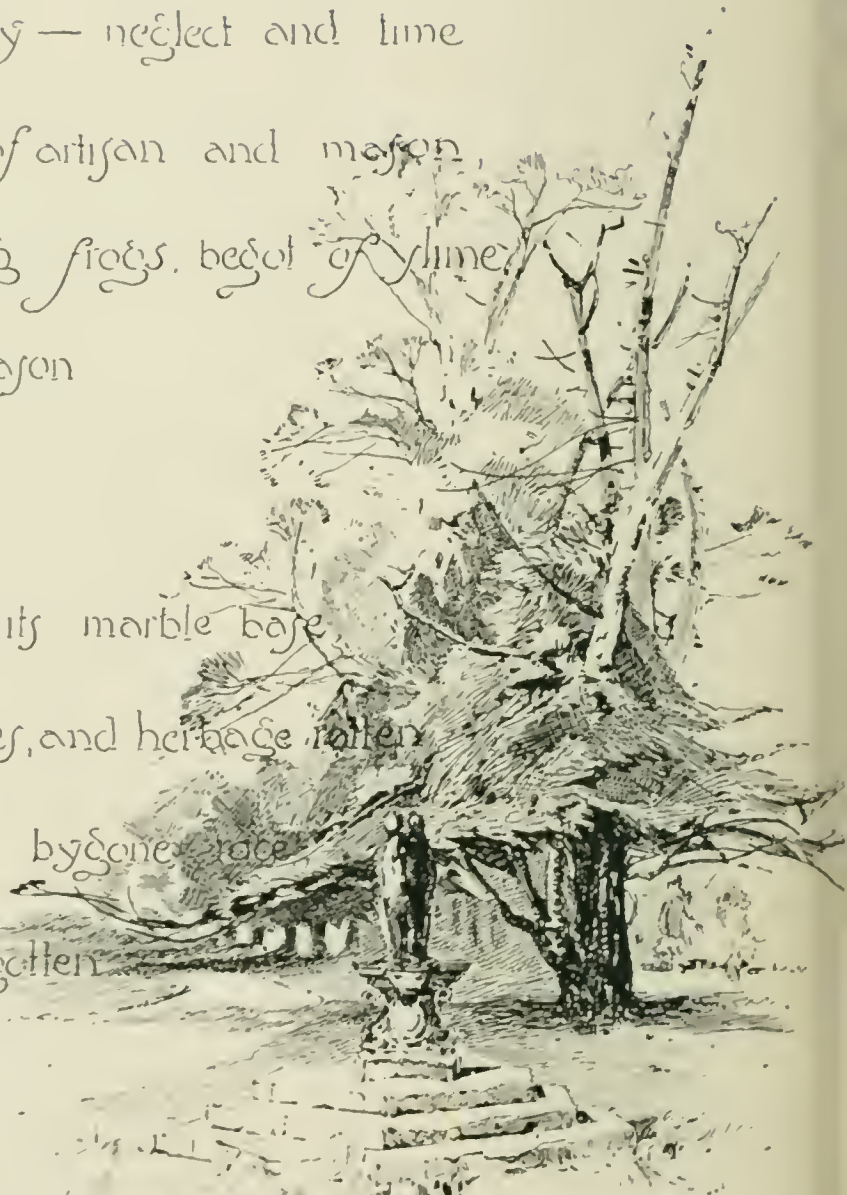 y — neglect and time
of artisan and mason,
g frogs, begot of slime
ason
its marble base
es, and herbage rotten
bygone race
gotten